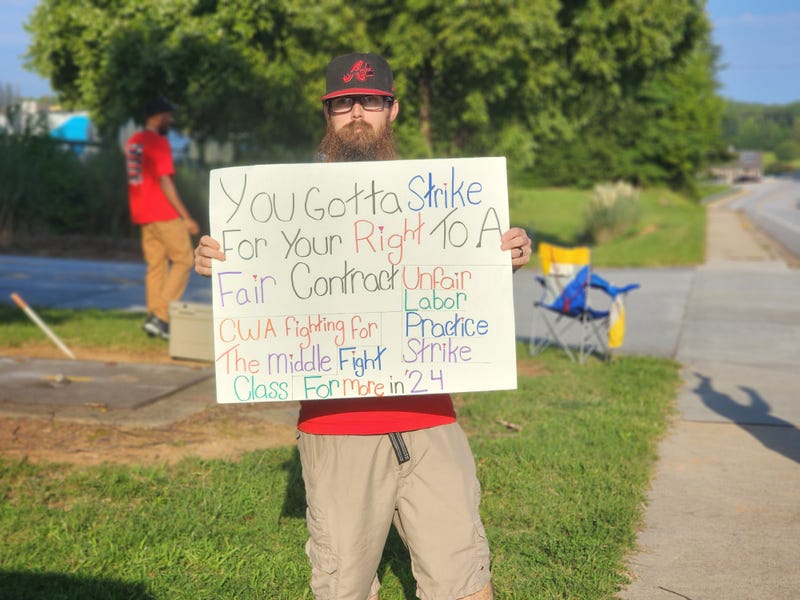 You Gotta Strike
For Your Right To A
Fair Contract
Unfair
Labor
Practice
Strike
CWA fighting for
The middle
Class
Fight
For more in '24
A